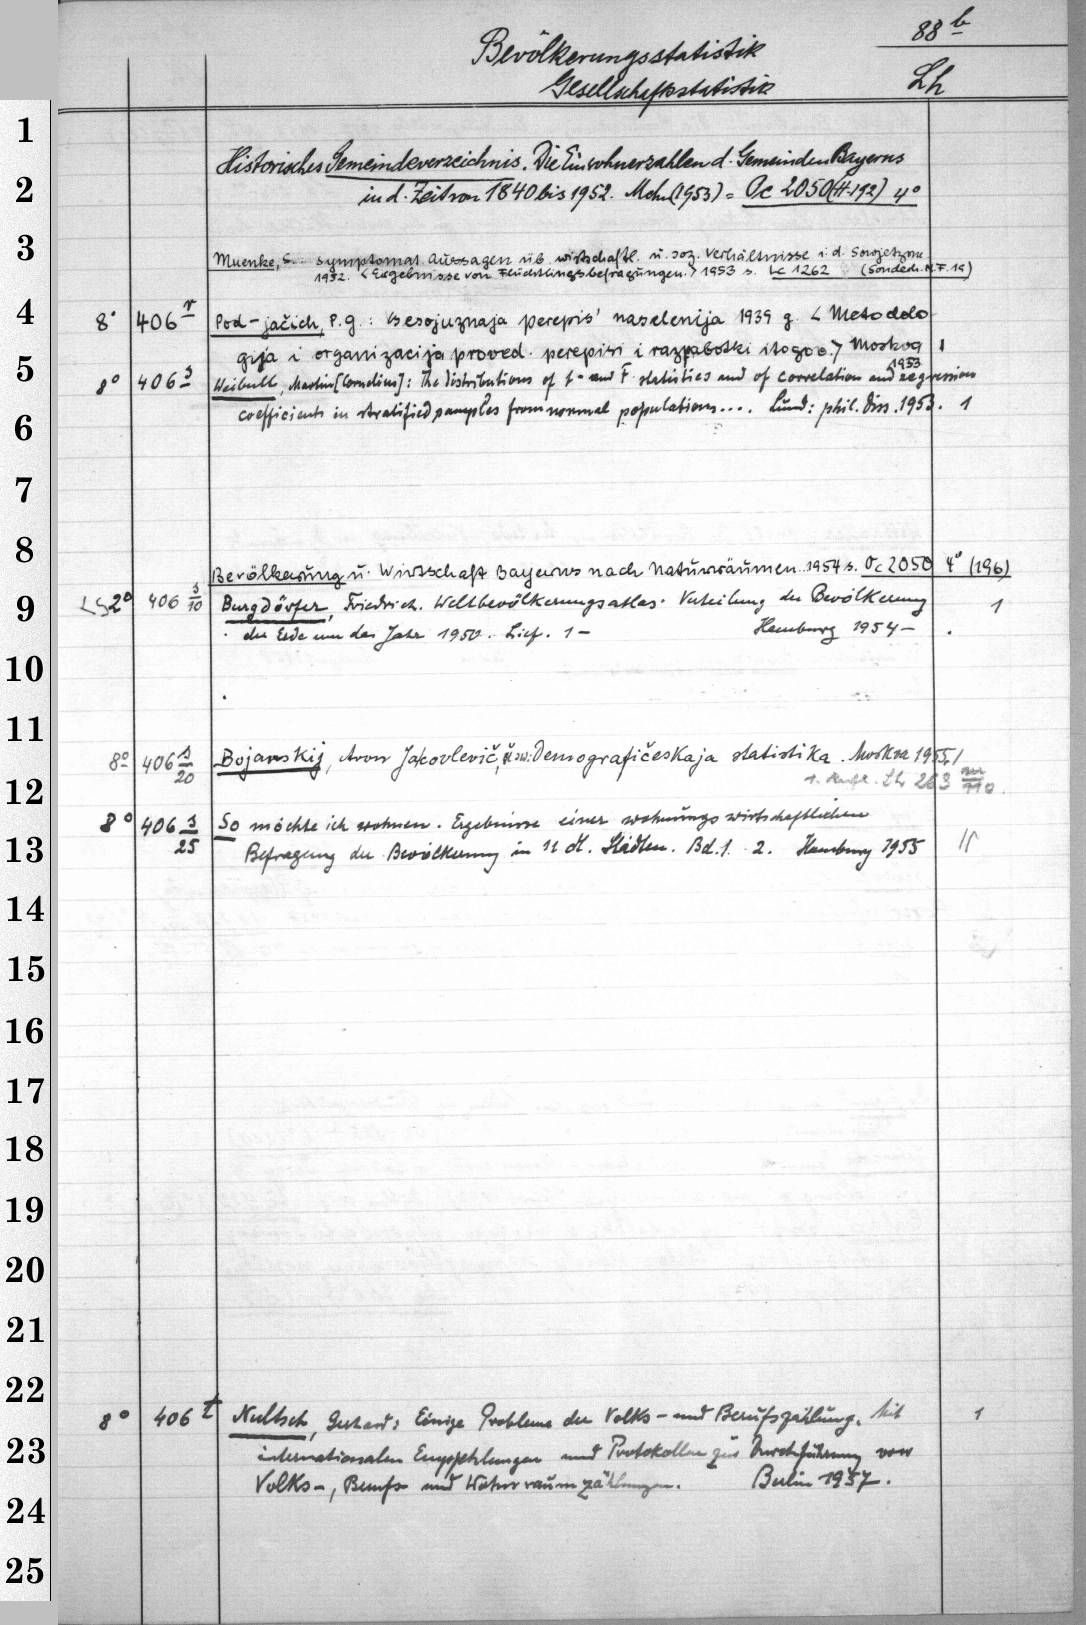 88 b
Bevölkerungsstatistik
Gesellschaftsstatistik
Lh
1
Historisches Gemeindeverzeichnis. Die Einwohnerzahlen d. Gemeinden Bayerns
2
in d. Zeit von 1840 bis 1952. Mchn (1953) = Oc 2050 (H. 192) 4°
3
Muenke, S. Symptomat. Aussagen üb. wirtschaftl. u. soz. Verhältnisse i. d. Sowjetzone
1952. <Ergebnisse von Flüchtlingsbefragungen.> 1953 s. Lc 1262 (Sonderh. N.F. 19)
4
8° 406 r Pod-jačich, P. g.: Vsesojuznaja perepis' naselenija 1939 g. <Metodolo-
gija i organizacija proved. perepisi i razrabotki itogov.> Moskva 1
1953
5
8° 406 s Weibull, Martin [Cornelius]: The distributions of t- and F-statistics and of correlation and regression
coefficients in stratified samples from normal populations.... Lund: phil. Diss. 1953. 1
6
7
8
Bevölkerung u. Wirtschaft Bayerns nach Naturräumen. 1954 s. Oc 2050 4° (196)
9
LS 2° 406 s/10 Burgdörfer, Friedrich. Weltbevölkerungsatlas. Verteilung der Bevölkerung 1
der Erde um das Jahr 1950. Lief. 1- Hamburg 1954-
10
11
8° 406 s/20 Bojarskij, Aron Jakovlevič, u. Demografičeskaja statistika. Moskva 1955. 1
1. Aufl. Lh 263
12
8° 406 s/25 So möchte ich wohnen. Ergebnisse einer wohnungswirtschaftlichen
13
Befragung der Bevölkerung in 11 dt. Städten. Bd. 1. 2. Hamburg 1955
14
15
16
17
18
19
20
21
22
8° 406 t Nultsch, Gerhard: Einige Probleme der Volks- und Berufszählung. Mit 1
23
internationalen Empfehlungen und Protokollen zur Durchführung von
Volks-, Berufs- und Wohnraumzählungen. Berlin 1957.
24
25